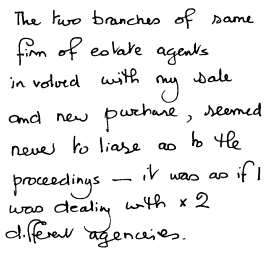 The two branches of same
firm of estate agents
involved with my sale
and new purchase, seemed
never to liase as to the
proceedings — it was as if I
was dealing with x 2
different agencies.